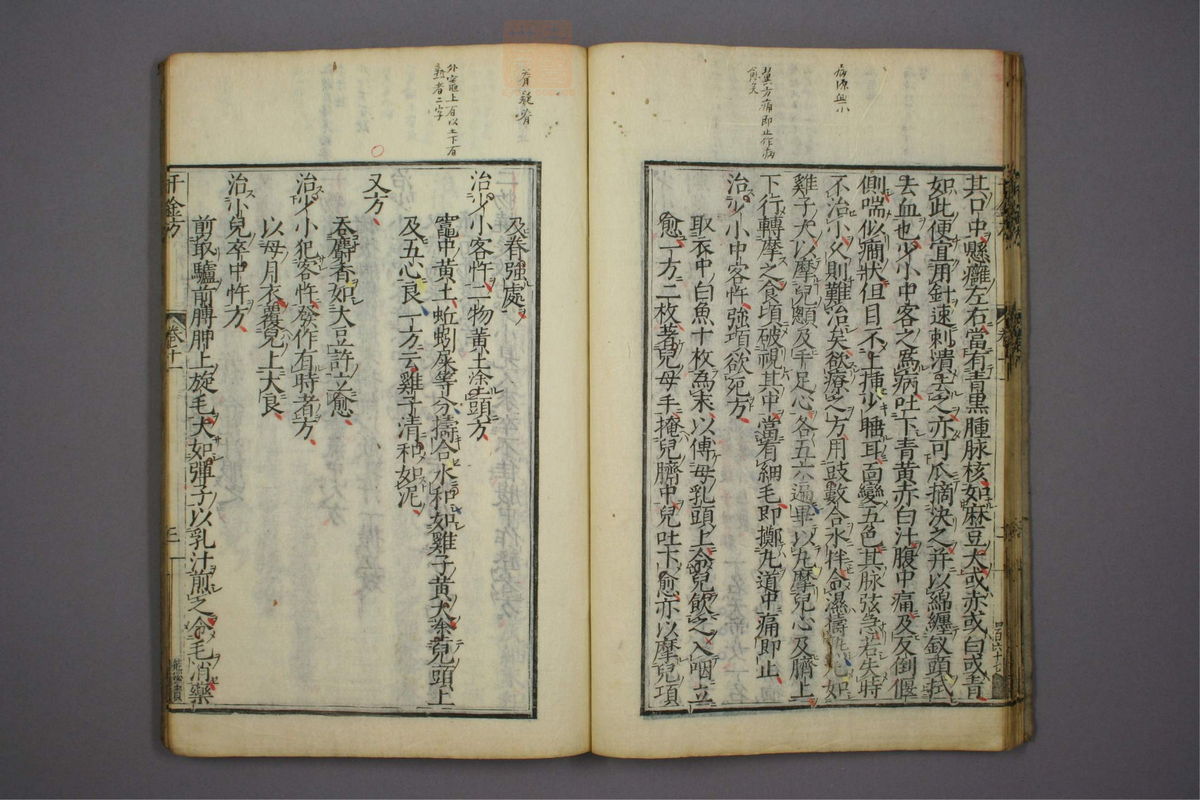 其口中懸癰左右當有青黒腫脉核如麻豆大或赤或白或青
如此便宜用針速刺潰去之亦可爪摘決之并以綿纏釵頭拭
去血也少小中客之為病吐下青黄赤白汁腹中痛及反倒偃
側喘似癇狀但目不上插少睡耳面變五色其脉弦急若失時
不治小久則難治矣欲療之方用豉數合水拌令濕擣熟丸如
雞子大以摩兒顖及手足心各五六遍畢以丸摩兒心及臍上
下行轉摩之食頃破視其中當有細毛即擲丸道中痛即止
治少小中客忤強項欲死方
取衣中白魚十枚為末以傅母乳頭上令兒飲之入咽立
愈一方二枚著兒母手掩兒臍中兒吐下愈亦以摩兒項
及脊強處
治少小客忤二物黄土塗頭方
竈中黄土蚯蚓屎等分擣合水和如雞子黄大塗兒頭上
及五心良一方云雞子清和如泥
又方
吞麝香如大豆許立愈
治少小犯客忤發作有時者方
以母月衣覆兒上大良
治小兒卒中忤方
剪取驢前膊胛上旋毛大如彈子以乳汁煎之令毛消藥
千金方
卷十一
三
病源無小
翼方痛即止作病
愈矣
脊疑脊
外臺上有以土下有
熟者二字